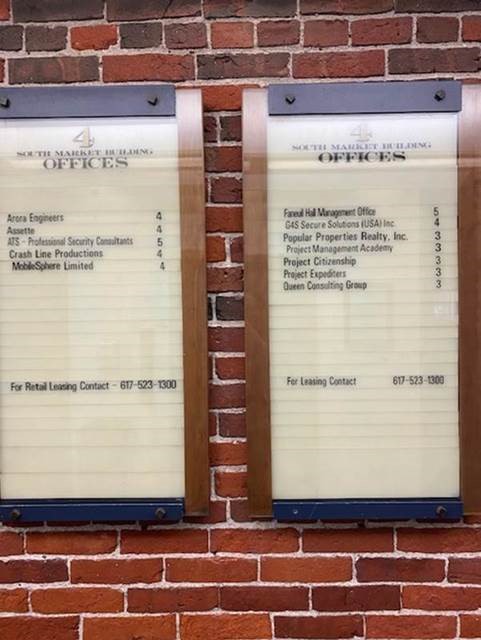 4
SOUTH MARKET BUILDING
OFFICES
Arora Engineers 4
Assette 4
ATS - Professional Security Consultants 5
Crash Line Productions 4
MobileSphere Limited 4
For Retail Leasing Contact - 617-523-1300
4
SOUTH MARKET BUILDING
OFFICES
Faneuil Hall Management Office 5
G4S Secure Solutions (USA) Inc. 4
Popular Properties Realty, Inc. 3
Project Management Academy 3
Project Citizenship 3
Project Expediters 3
Queen Consulting Group 3
For Leasing Contact 617-523-1300